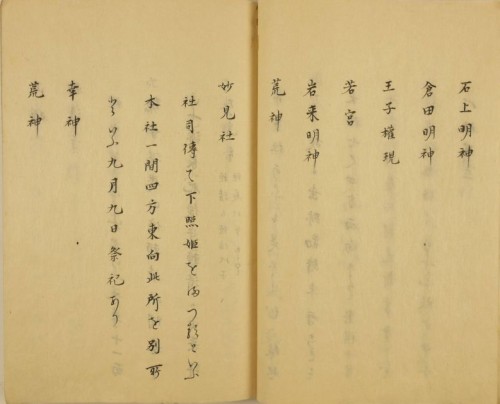 石上明神
倉田明神
王子権現
若宮
岩来明神
荒神
妙見社
社司傳て下照姫をまつるといふ
本社一間四方東向此所を別所
といふ九月九日祭祀あり
幸神
荒神